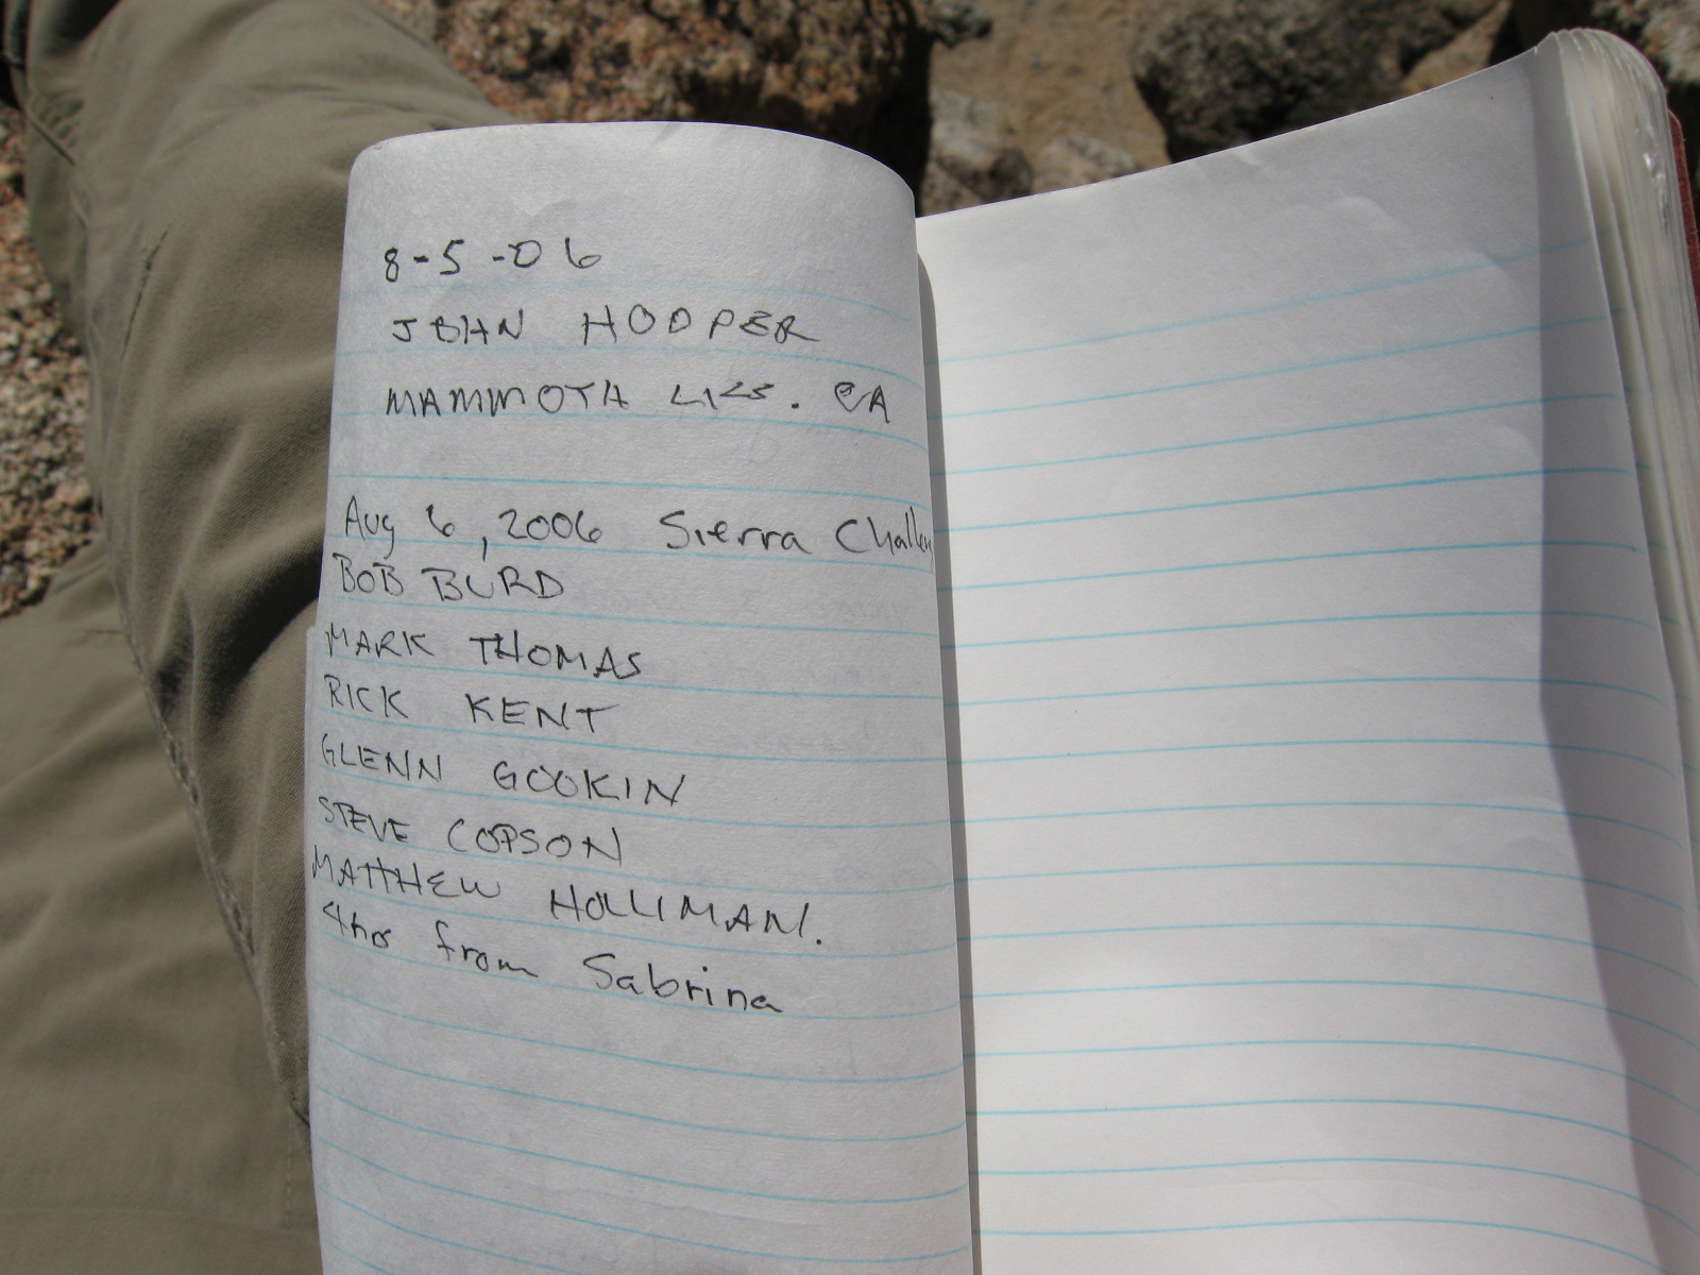 8-5-06
JOHN HOOPER
MAMMOTH LKS. CA
Aug 6, 2006 Sierra Challen
BOB BURD
MARK THOMAS
RICK KENT
GLENN GOOKIN
STEVE COPSON
MATTHEW HOLLIMAN.
4hrs from Sabrina